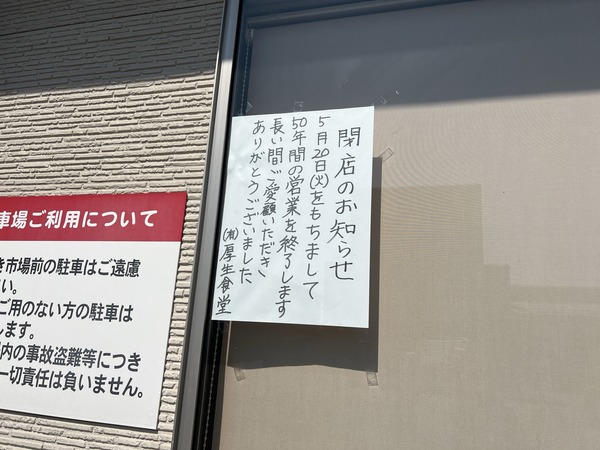 閉店のお知らせ
5月20日(火)をもちまして
50年間の営業を終了します
長い間ご愛顧いただき
ありがとうございました
(有)厚生食堂
車場ご利用について
き市場前の駐車はご遠慮
い。
ご用のない方の駐車は
します。
内の事故盗難等につき
一切責任は負いません。